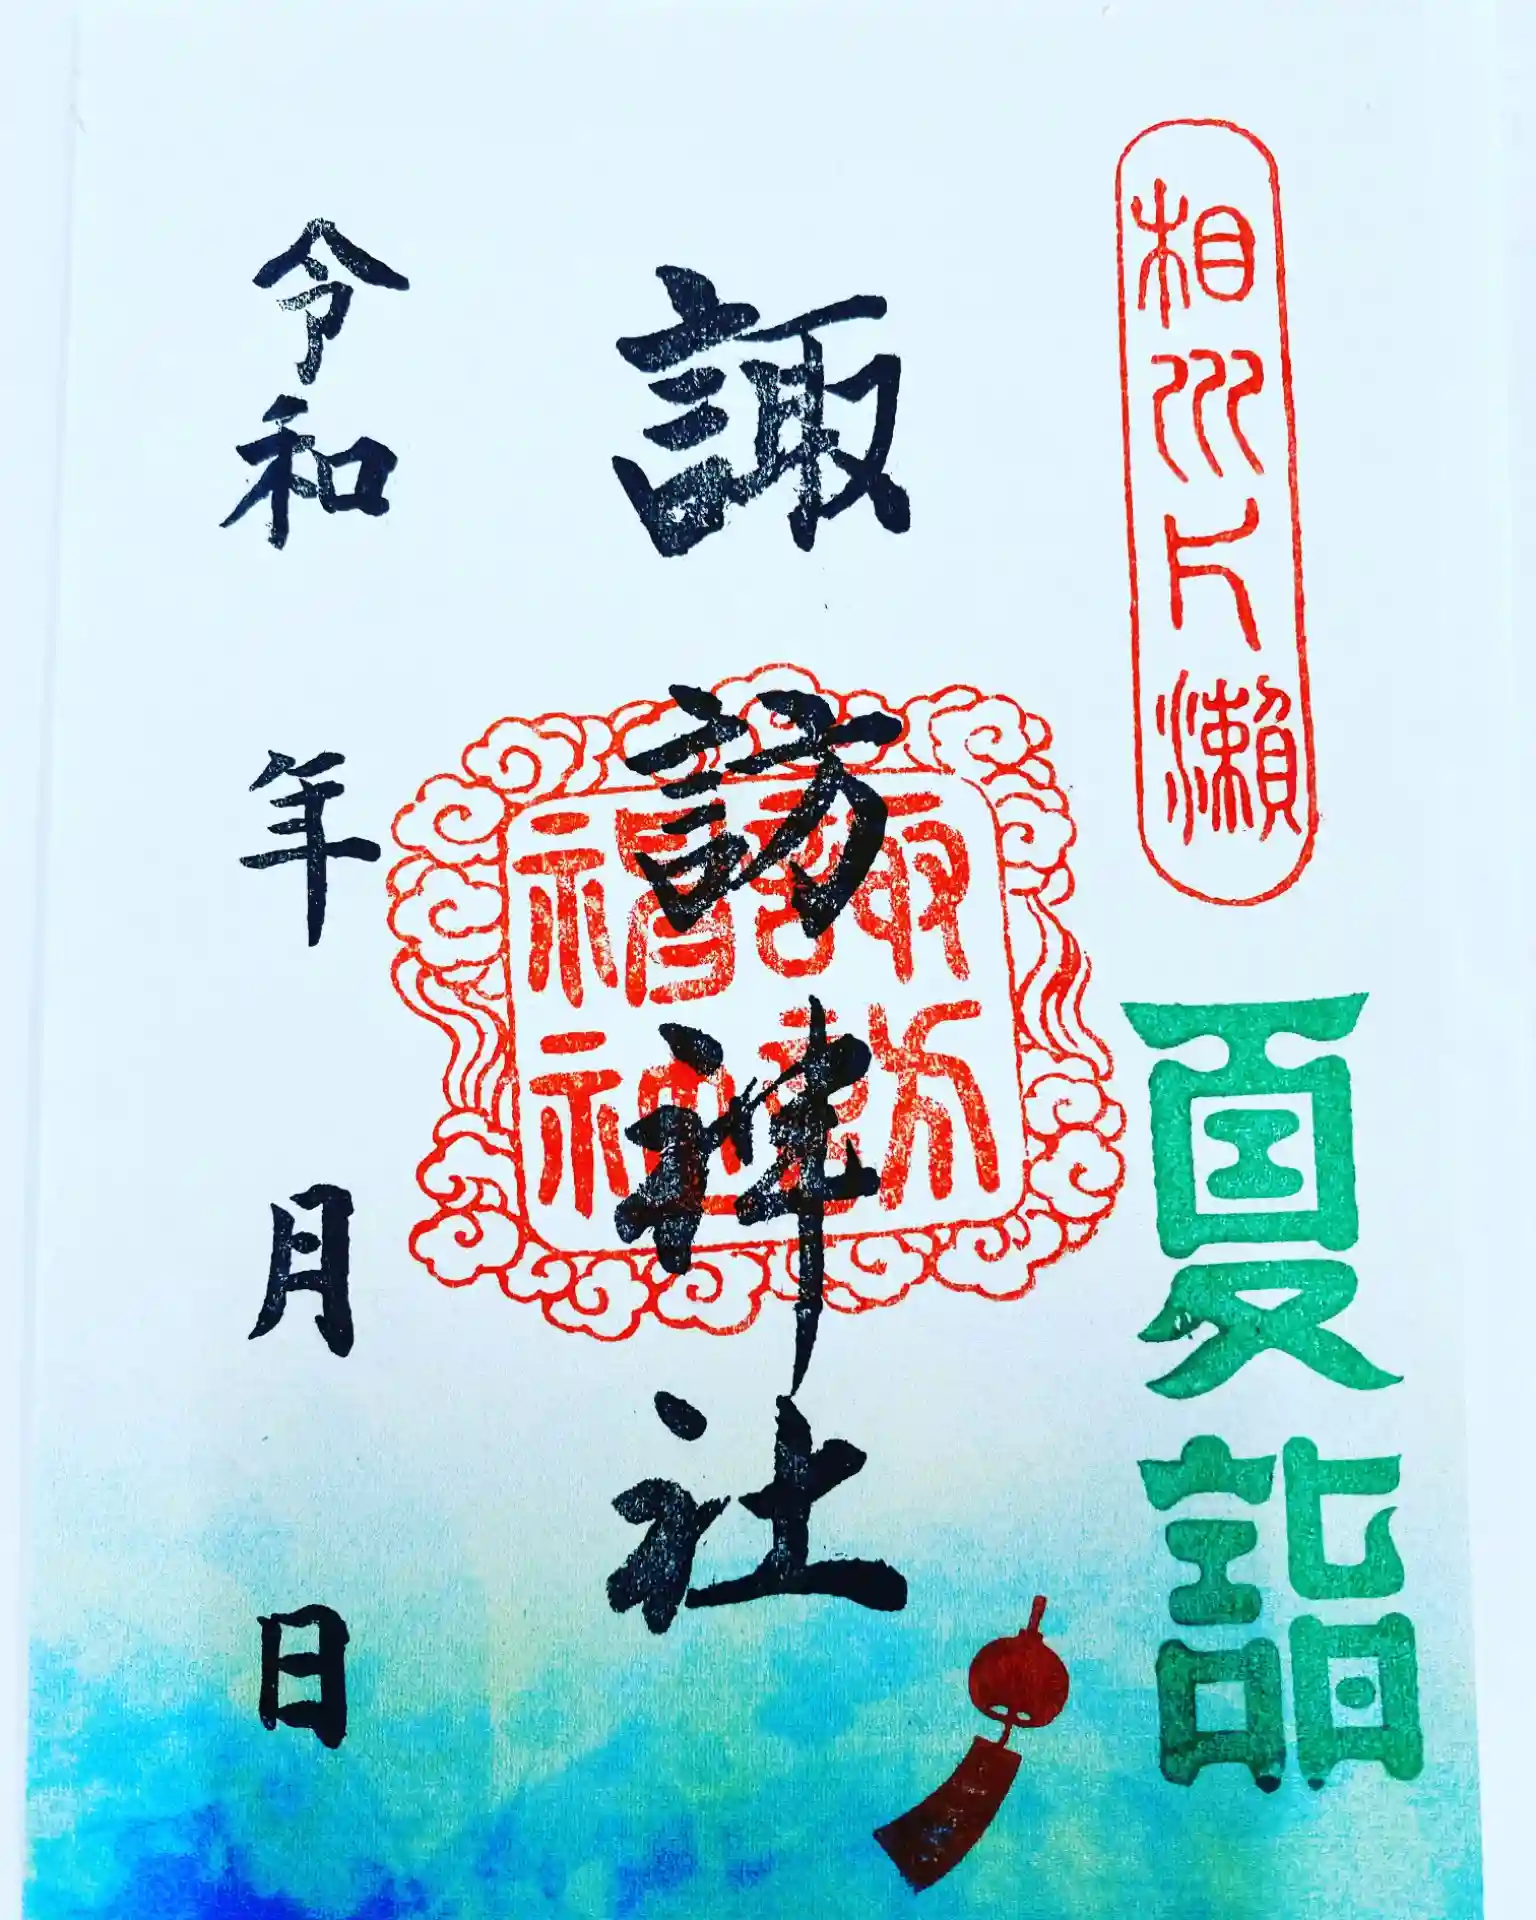 相州片瀬
夏詣
諏訪神社
諏訪大神神璽
令和 年 月 日